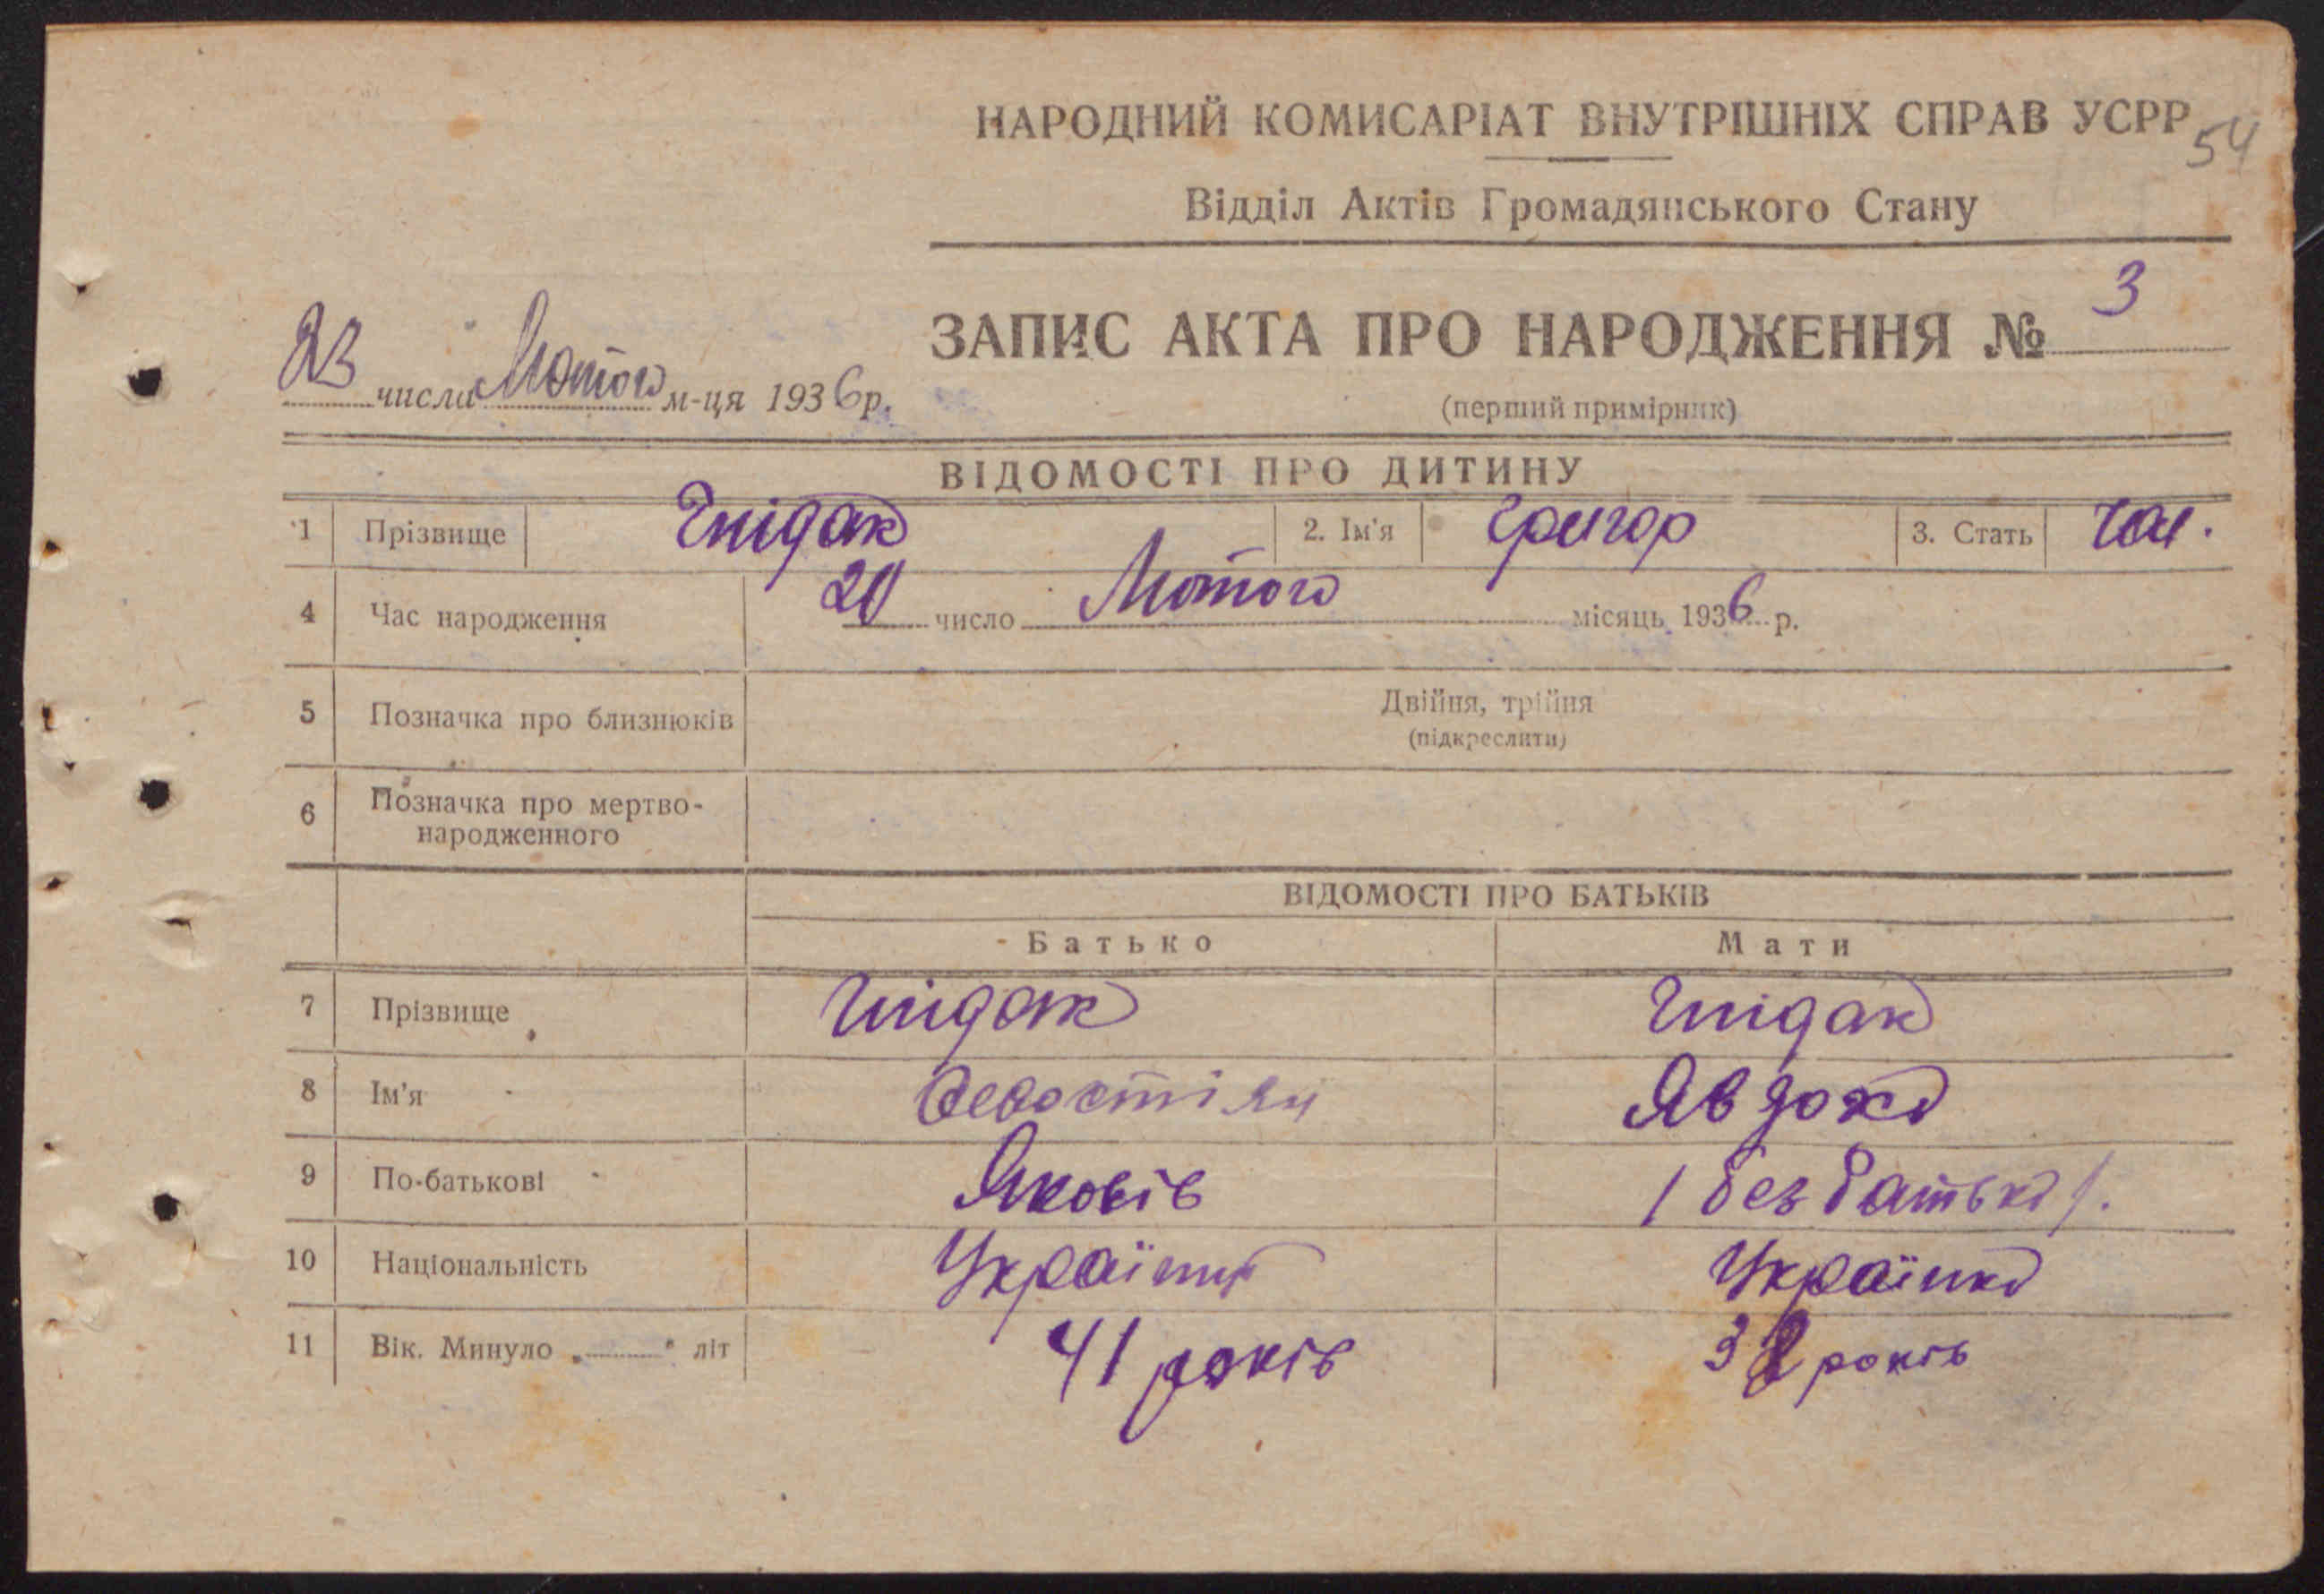 НАРОДНИЙ КОМИСАРІАТ ВНУТРІШНІХ СПРАВ УСРР
54
Відділ Актів Громадянського Стану
ЗАПИС АКТА ПРО НАРОДЖЕННЯ № 3
23 числа Лютого м-ця 1936 р.
(перший примірник)
ВІДОМОСТІ ПРО ДИТИНУ
1 Прізвище Гнідак 2. Ім'я Григор 3. Стать Чол.
4 Час народження 20 число Лютого місяць 1936 р.
5 Позначка про близнюків Двійня, трійня
(підкреслити)
6 Позначка про мертво-
народженного
ВІДОМОСТІ ПРО БАТЬКІВ
Батько Мати
7 Прізвище Гнідак Гнідак
8 Ім'я Севастіян Явдоха
9 По-батькові Яковів / без батька /.
10 Національність Українець Українка
11 Вік. Минуло „ " літ 41 років років